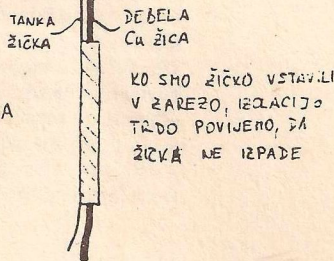 TANKA
ŽIČKA
DEBELA
Cu ŽICA
A
KO SMO ŽIČKO VSTAVILI
V ZAREZO, IZOLACIJO
TRDO POVIJEMO, DA
ŽIČKA NE IZPADE